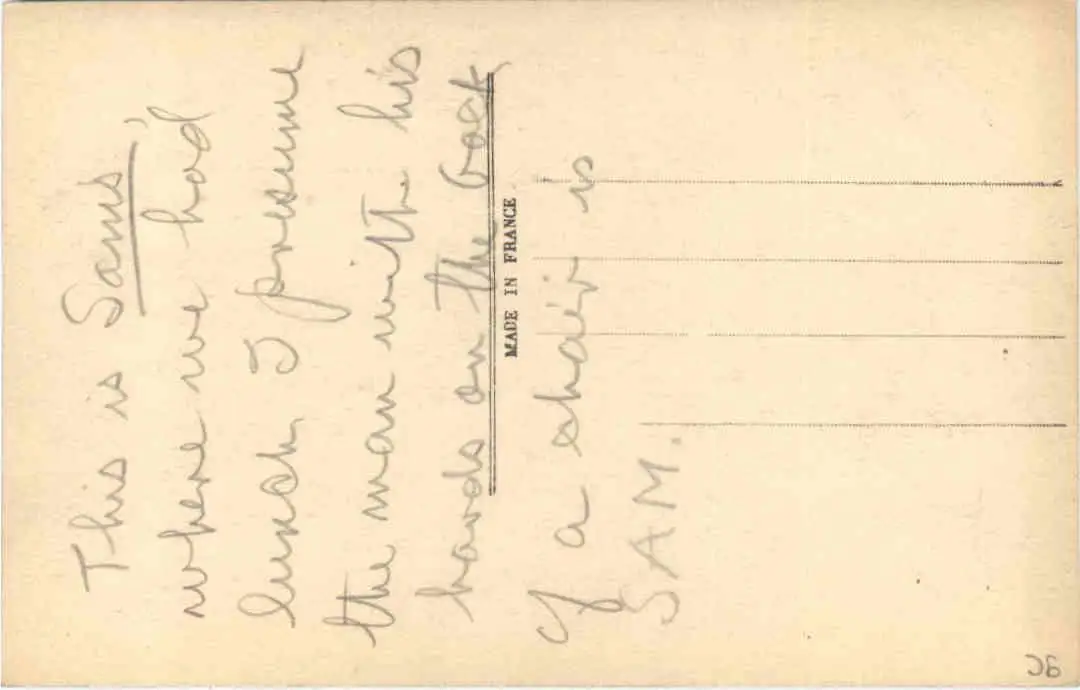 This is Sams'
where we had
lunch. I presume
the man with his
hands on the back
of a chair is
SAM.
MADE IN FRANCE